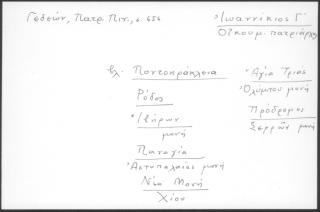 Γεδεών, Πατρ. Πιν., σ. 656
Ἰωαννίκιος Γ΄
Οἰκουμ. πατριάρχης
βλ. Ποντοηράκλεια
Ρόδος
Ἰβήρων
μονή
Παναγία
Ἀστυπαλαίας μονή
Νέα Μονή
Χίου
Ἁγία Τριὰς
Ὀλύμπου μονή
Πρόδρομος
Σερρῶν μονή